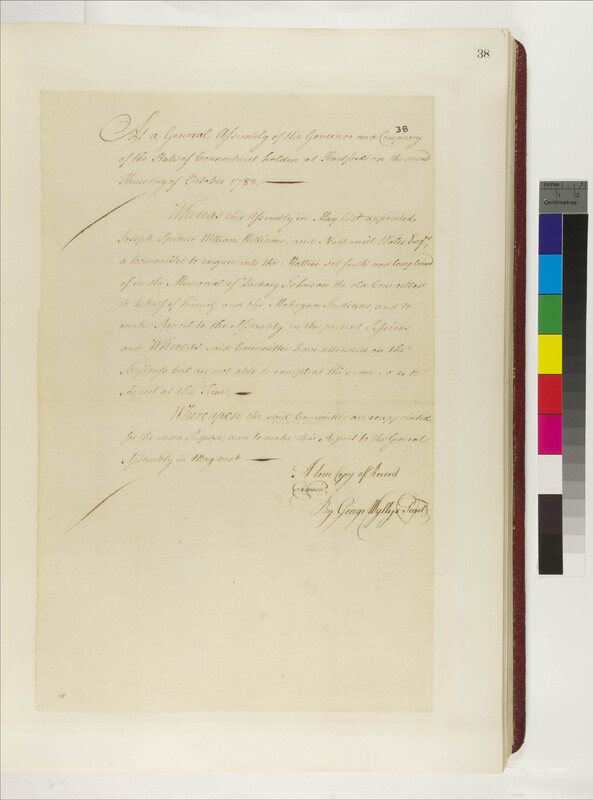 38
38
At a General Assembly of the Governor and Company
of the State of Connecticut holden at Hartford on the second
Thursday of October 1782.
Whereas this Assembly in May last appointed
Joseph Spencer William Williams, and Nathaniel Wales Esqrs
a Committee to enquire into the Matters set forth and complained
of in the Memorial of Zachary Johnson the old Councillor
in behalf of himself and the Mohegan Indians, and to
make Report to the Assembly in the present Session
and Whereas said Committee have attended on the
Business but are not able to compleat the same so as to
Report at this Time.
Whereupon the said Committee are reappointed
for the same Purpose, and to make their Report to the General
Assembly in May next
A true Copy of Record
Examined
By George Wyllys Secret
Inches 1
1 2
Centimetres